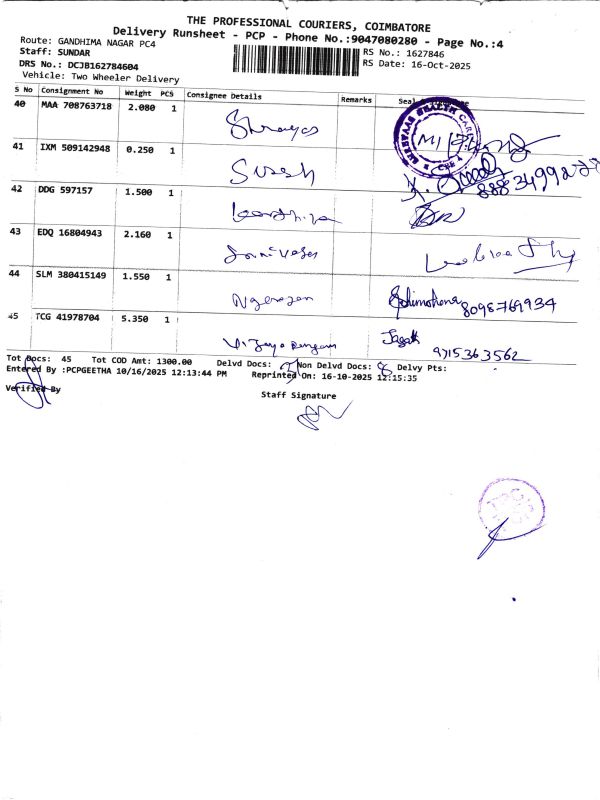 THE PROFESSIONAL COURIERS, COIMBATORE
Delivery Runsheet - PCP - Phone No.:9047080280 - Page No.:4
Route: GANDHIMA NAGAR PC4
Staff: SUNDAR
RS No.: 1627846
DRS No.: DCJB162784604
RS Date: 16-Oct-2025
Vehicle: Two Wheeler Delivery
S No Consignment No Weight PCS Consignee Details Remarks
40 MAA 708763718 2.080 1 Shrayas
41 IXM 509142948 0.250 1 Suresh
8883499278
42 DDG 597157 1.500 1
43 EDQ 16804943 2.160 1 Srinivasan
44 SLM 380415149 1.550 1 Nagarajan
8098769934
45 TCG 41978704 5.350 1 Vijaya Rangan Jagath
9715363562
Tot Docs: 45 Tot COD Amt: 1300.00 Delvd Docs: Non Delvd Docs: 8 Delvy Pts:
Entered By :PCPGEETHA 10/16/2025 12:13:44 PM Reprinted On: 16-10-2025 12:15:35
Verified By
Staff Signature